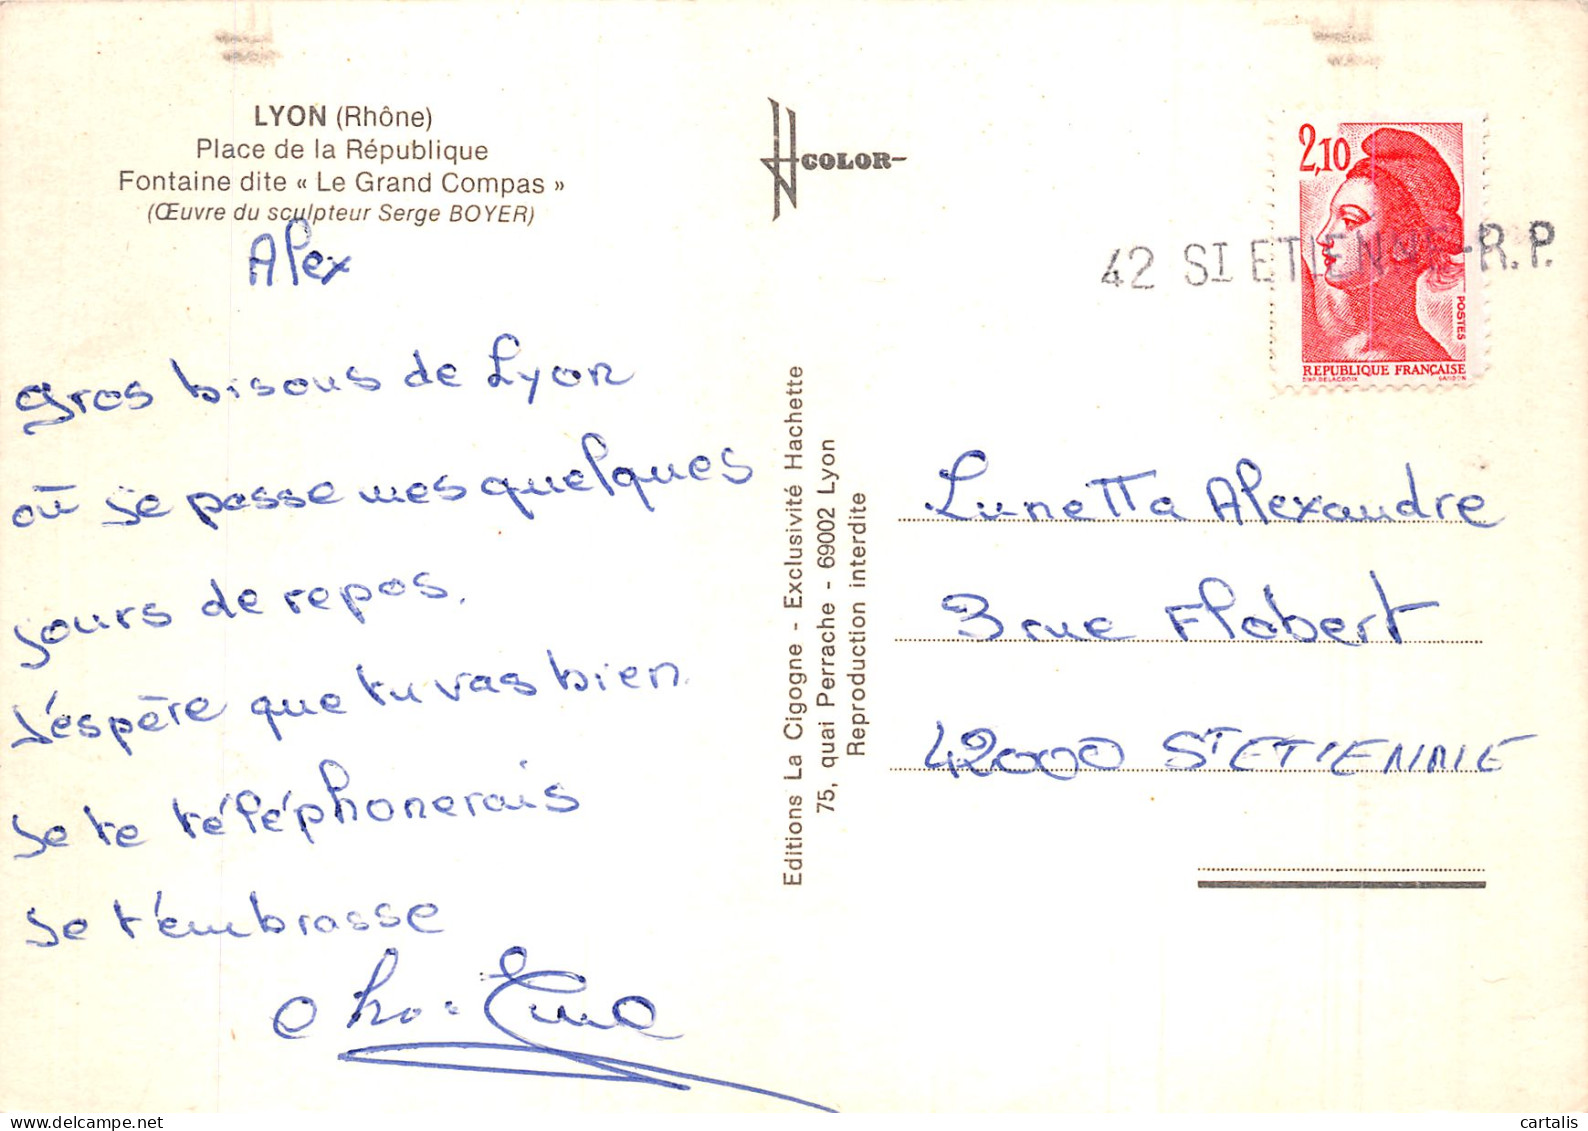 LYON (Rhône)
Place de la République
Fontaine dite « Le Grand Compas »
(Œuvre du sculpteur Serge BOYER)
Alex
gros bisous de Lyon
où je passe mes quelques
jours de repos.
J'espère que tu vas bien.
Je te téléphonerais
Je t'embrasse
COLOR
Editions La Cigogne - Exclusivité Hachette
75, quai Perrache - 69002 Lyon
Reproduction interdite
2,10
POSTES
REPUBLIQUE FRANÇAISE
D'AP. DELACROIX GANDON
42 ST ETIENNE-R.P.
Lunetta Alexandre
3 rue Flobert
42000 ST ETIENNE
© cartalis